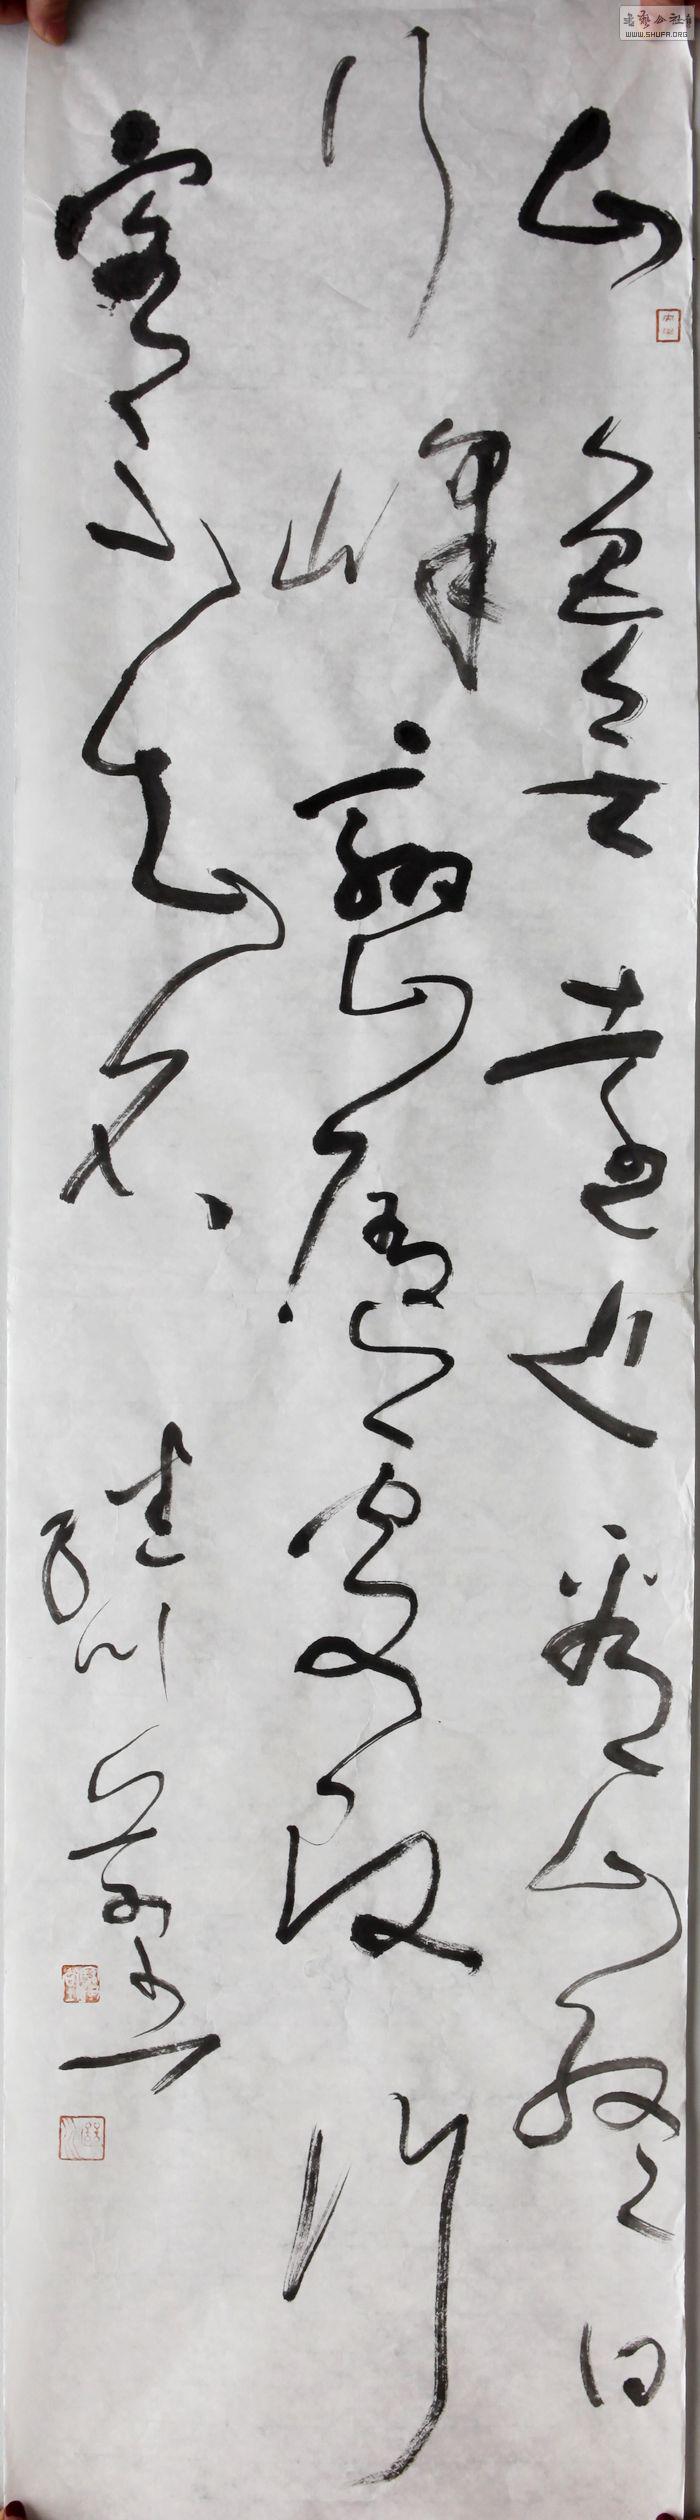 山色无远近看山终日
行峰峦随处改行
客不知名
書藝公社
WWW.SHUFA.ORG